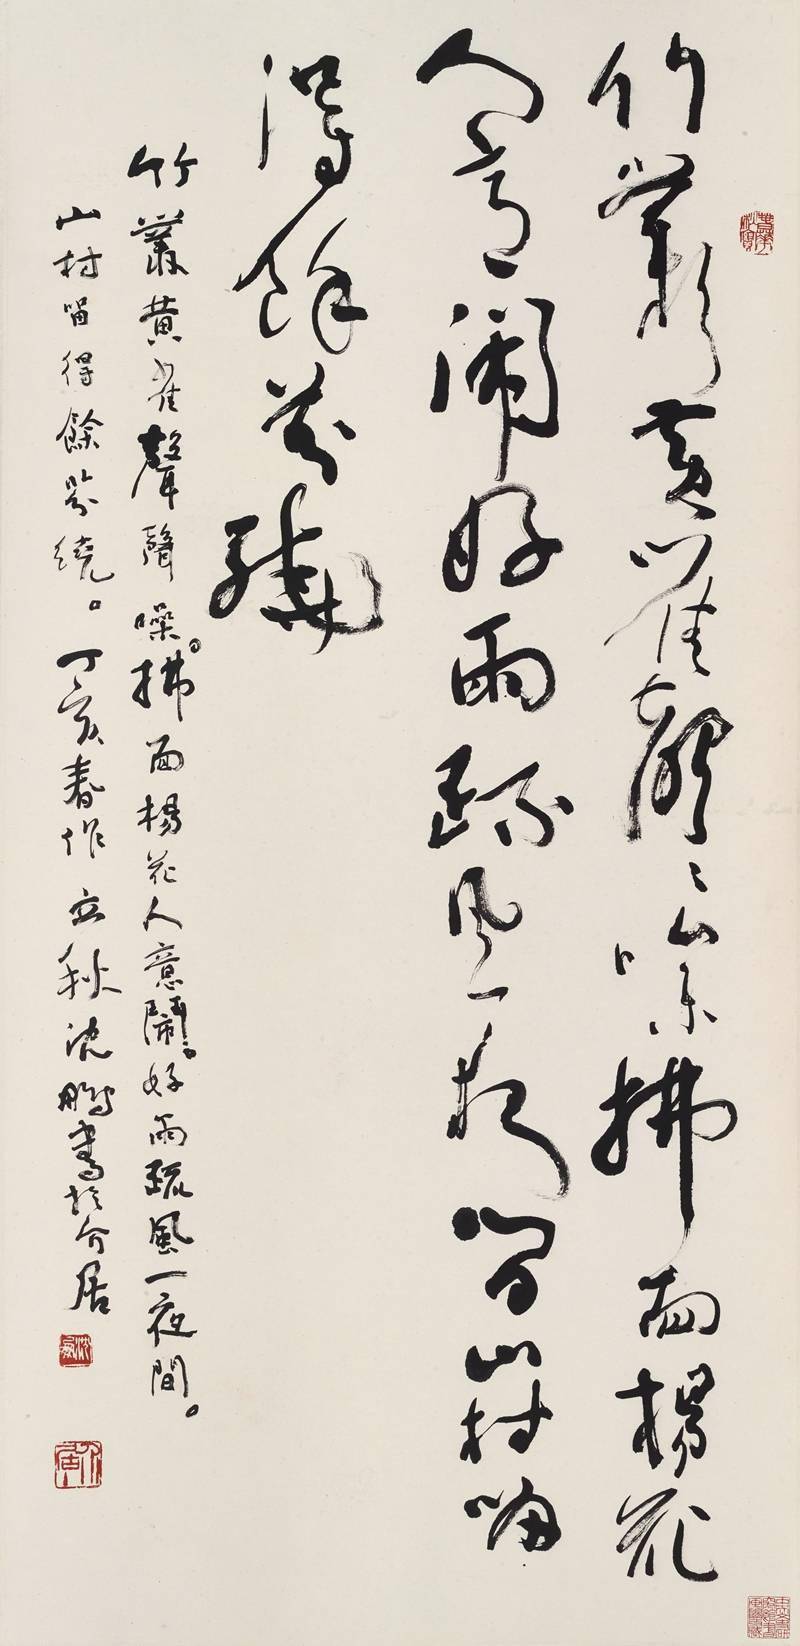 竹叢黃雀聲〻噪拂面楊花
人意鬧好雨疏風一夜間山村留
得餘芬繞
竹叢黃雀聲聲噪。拂面楊花人意鬧。好雨疏風一夜間。
山村留得餘芬繞。丁亥春作立秋沈鵬書於介居
沈鵬
介居